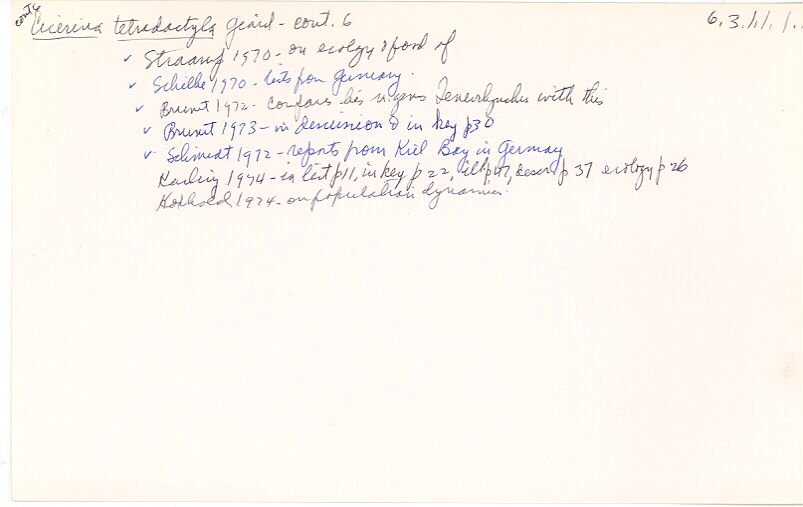 cont 6 Cicerina tetradactyla Giard - cont. 6 6.3.11.1.
✓ Straarup 1970 - on ecology & food of
✓ Schilke 1970 - lists from Germany.
✓ Brunet 1972 - compares his n. genus with this
✓ Brunet 1973 - in discussion & in key p 30
✓ Schmidt 1972 - reports from Kiel Bay in Germany
Karling 1974 - in list p 11, in key p 22, ill p 47, descr p 37 ecology p 26
1974 - on population dynamics.